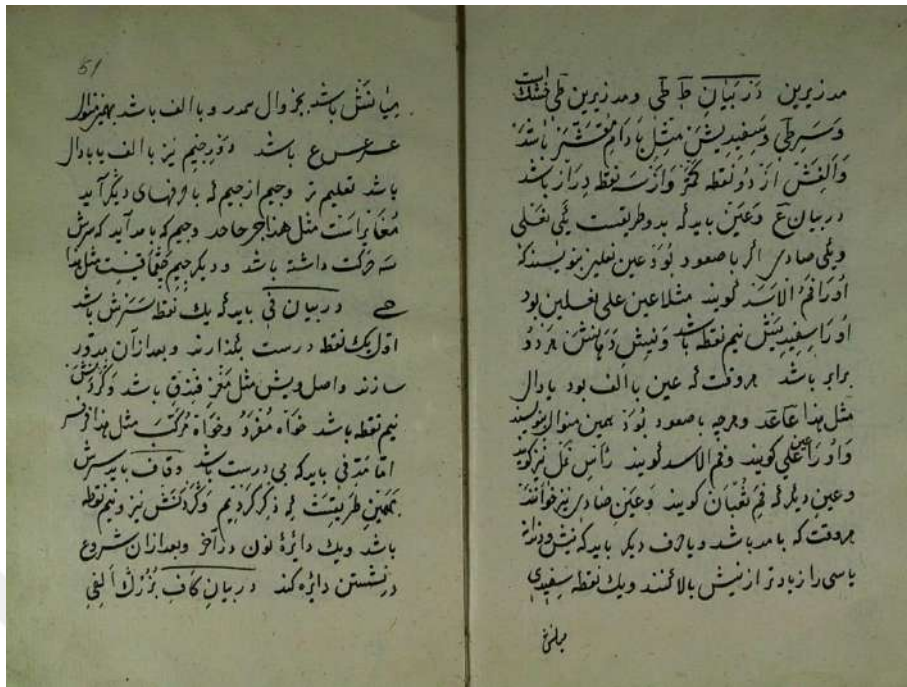 مد زیرین در بیان ط طی ومد زیرین طی خشک است
وسر طی وسفیدیش مثل بادام مقشر باشد
والفش از دو نقطه کمتر واز سه نقطه دراز باشد
در بیان ع وعین باید که بدو طریقست یکی نعلی
ویکی صادی اگر با صعود بود عین نعلین بنویسند که
او را فم الاسد گویند مثلا عین علی نعلین بود
او را سفیدیش نیم نقطه باشد ونیش دهانش هر دو
برابر باشد هر وقت که عین با الف بود یا دال
مثل هذا عا عد وهرچه با صعود بود بهمین منوال بنویسند
واو را عین علی گویند وفم الاسد گویند رأس نمل نیز گویند
وعین دیگر که فم ثعبان گویند وعین صادی نیز خوانند
هر وقت که با مد باشد ویا حرف دیگر باید که نیش
یا سی را زیادتر از نیش بالا کنند ویک نقطه سفیدی
51
میانش باشد بجز وال مدر وبا الف باشد بهمین منوال
باشد ودور جیم نیز با الف یا با دال
باشد تعلیم تر وجیم از جیم که با حرفهای دیگر آید
مغایر است مثل هذا حا حد وجیم که با مد آید که سرش
سه حرکت داشته باشد ودیگر جیم مثل هذا
در بیان فی باید که یک نقطه سرش باشد
اول یک نقطه درست بگذارند وبعد از آن مدور
سازند واصل ویش مثل مغز فندق باشد وگردنش
نیم نقطه باشد خواه مفرد وخواه مرکب مثل هذا
اما مد فی باید که بی درست باشد وقاف باید سرش
بهمین طریقست که ذکر کردیم وگردنش نیز ونیم نقطه
باشد ویک دائرۀ نون در آخر وبعد از آن شروع
در نشستن دائره کند در بیان کاف بزرگ الفی